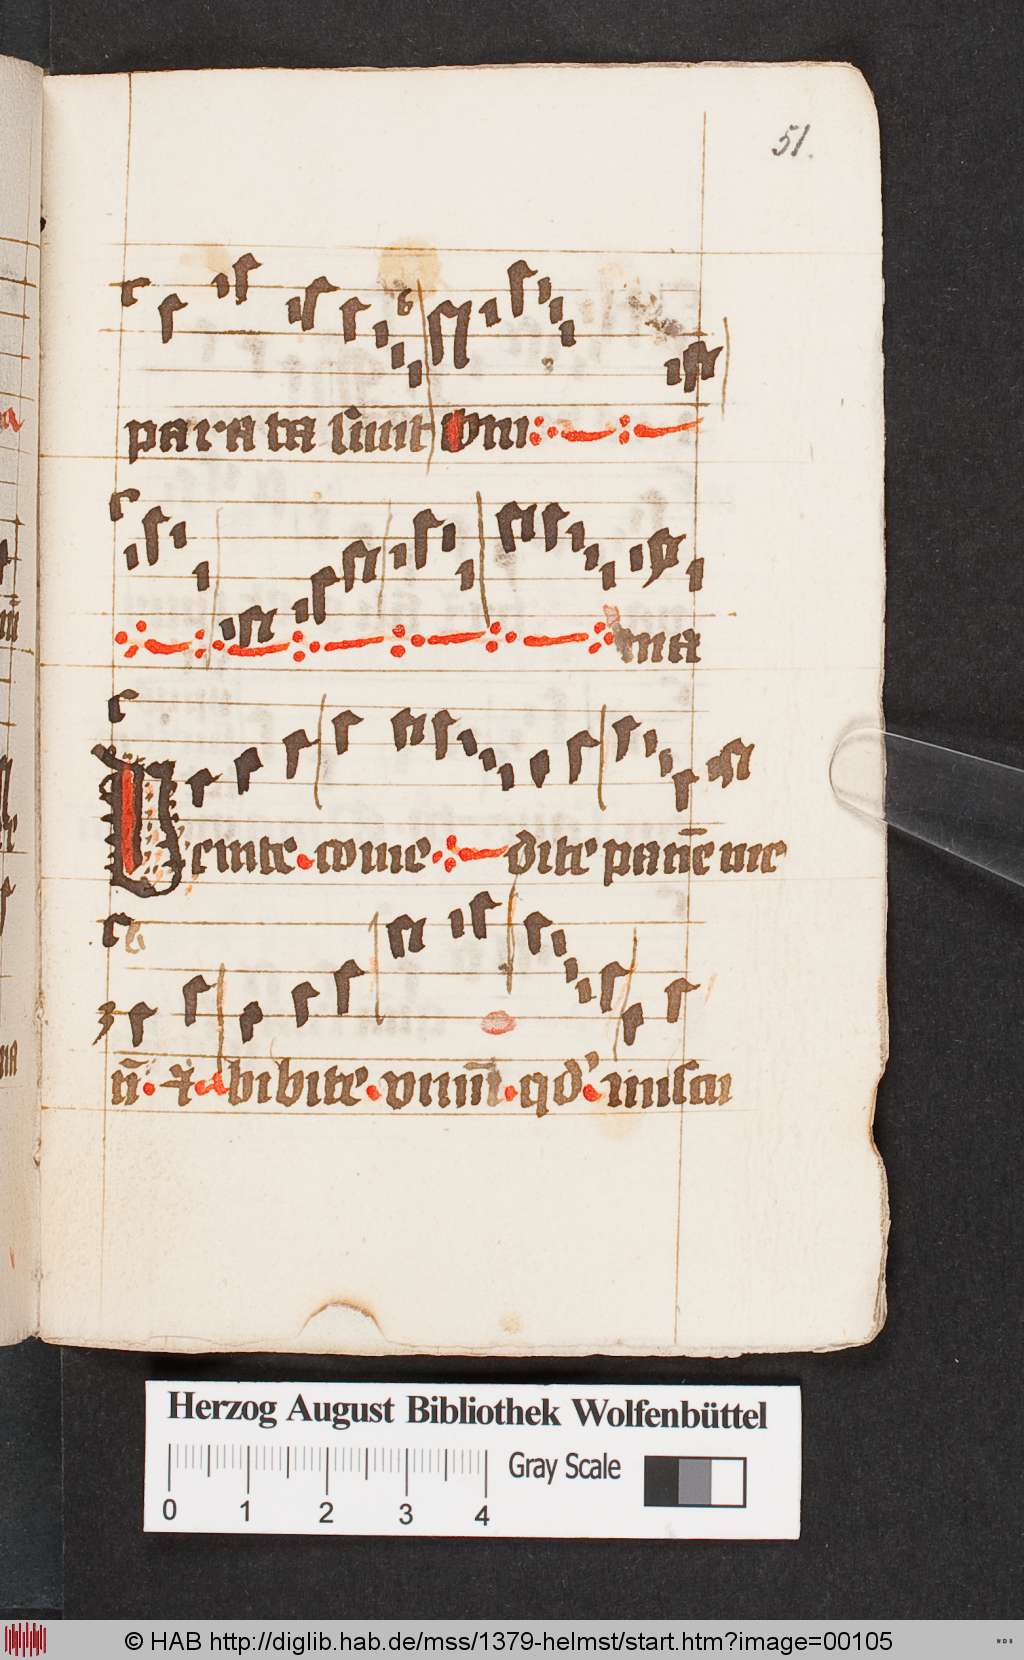 51.
parata sunt Omi
nia
Venite come dite panē me
ū ⁊ bibite vinū qd' miscu
Herzog August Bibliothek Wolfenbüttel
Gray Scale
0 1 2 3 4
© HAB http://diglib.hab.de/mss/1379-helmst/start.htm?image=00105